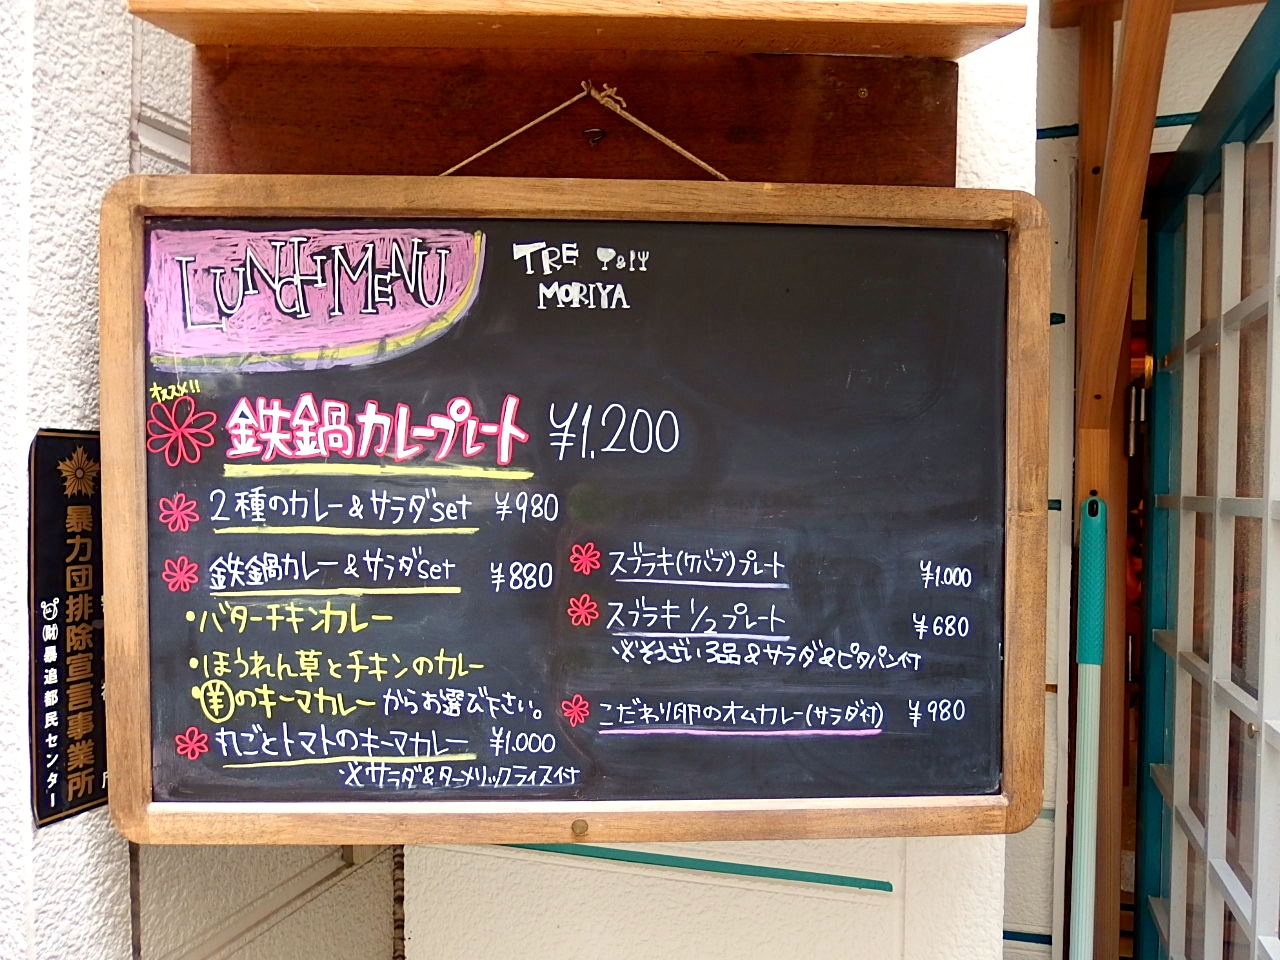 LUNCH MENU
TRE
MORIYA
オススメ!!
鉄鍋カレープレート ¥1.200
2種のカレー&サラダset ¥980
鉄鍋カレー&サラダset ¥880
・バターチキンカレー
・ほうれん草とチキンのカレー
・羊のキーマカレーからお選び下さい。
丸ごとトマトのキーマカレー ¥1.000
※サラダ&ターメリックライス付
スブラキ(ケバブ)プレート ¥1.000
スブラキ1/2プレート ¥680
※そうざい3品&サラダ&ピタパン付
こだわり卵のオムカレー(サラダ付) ¥980
暴力団排除宣言事業所
(財)暴追都民センター